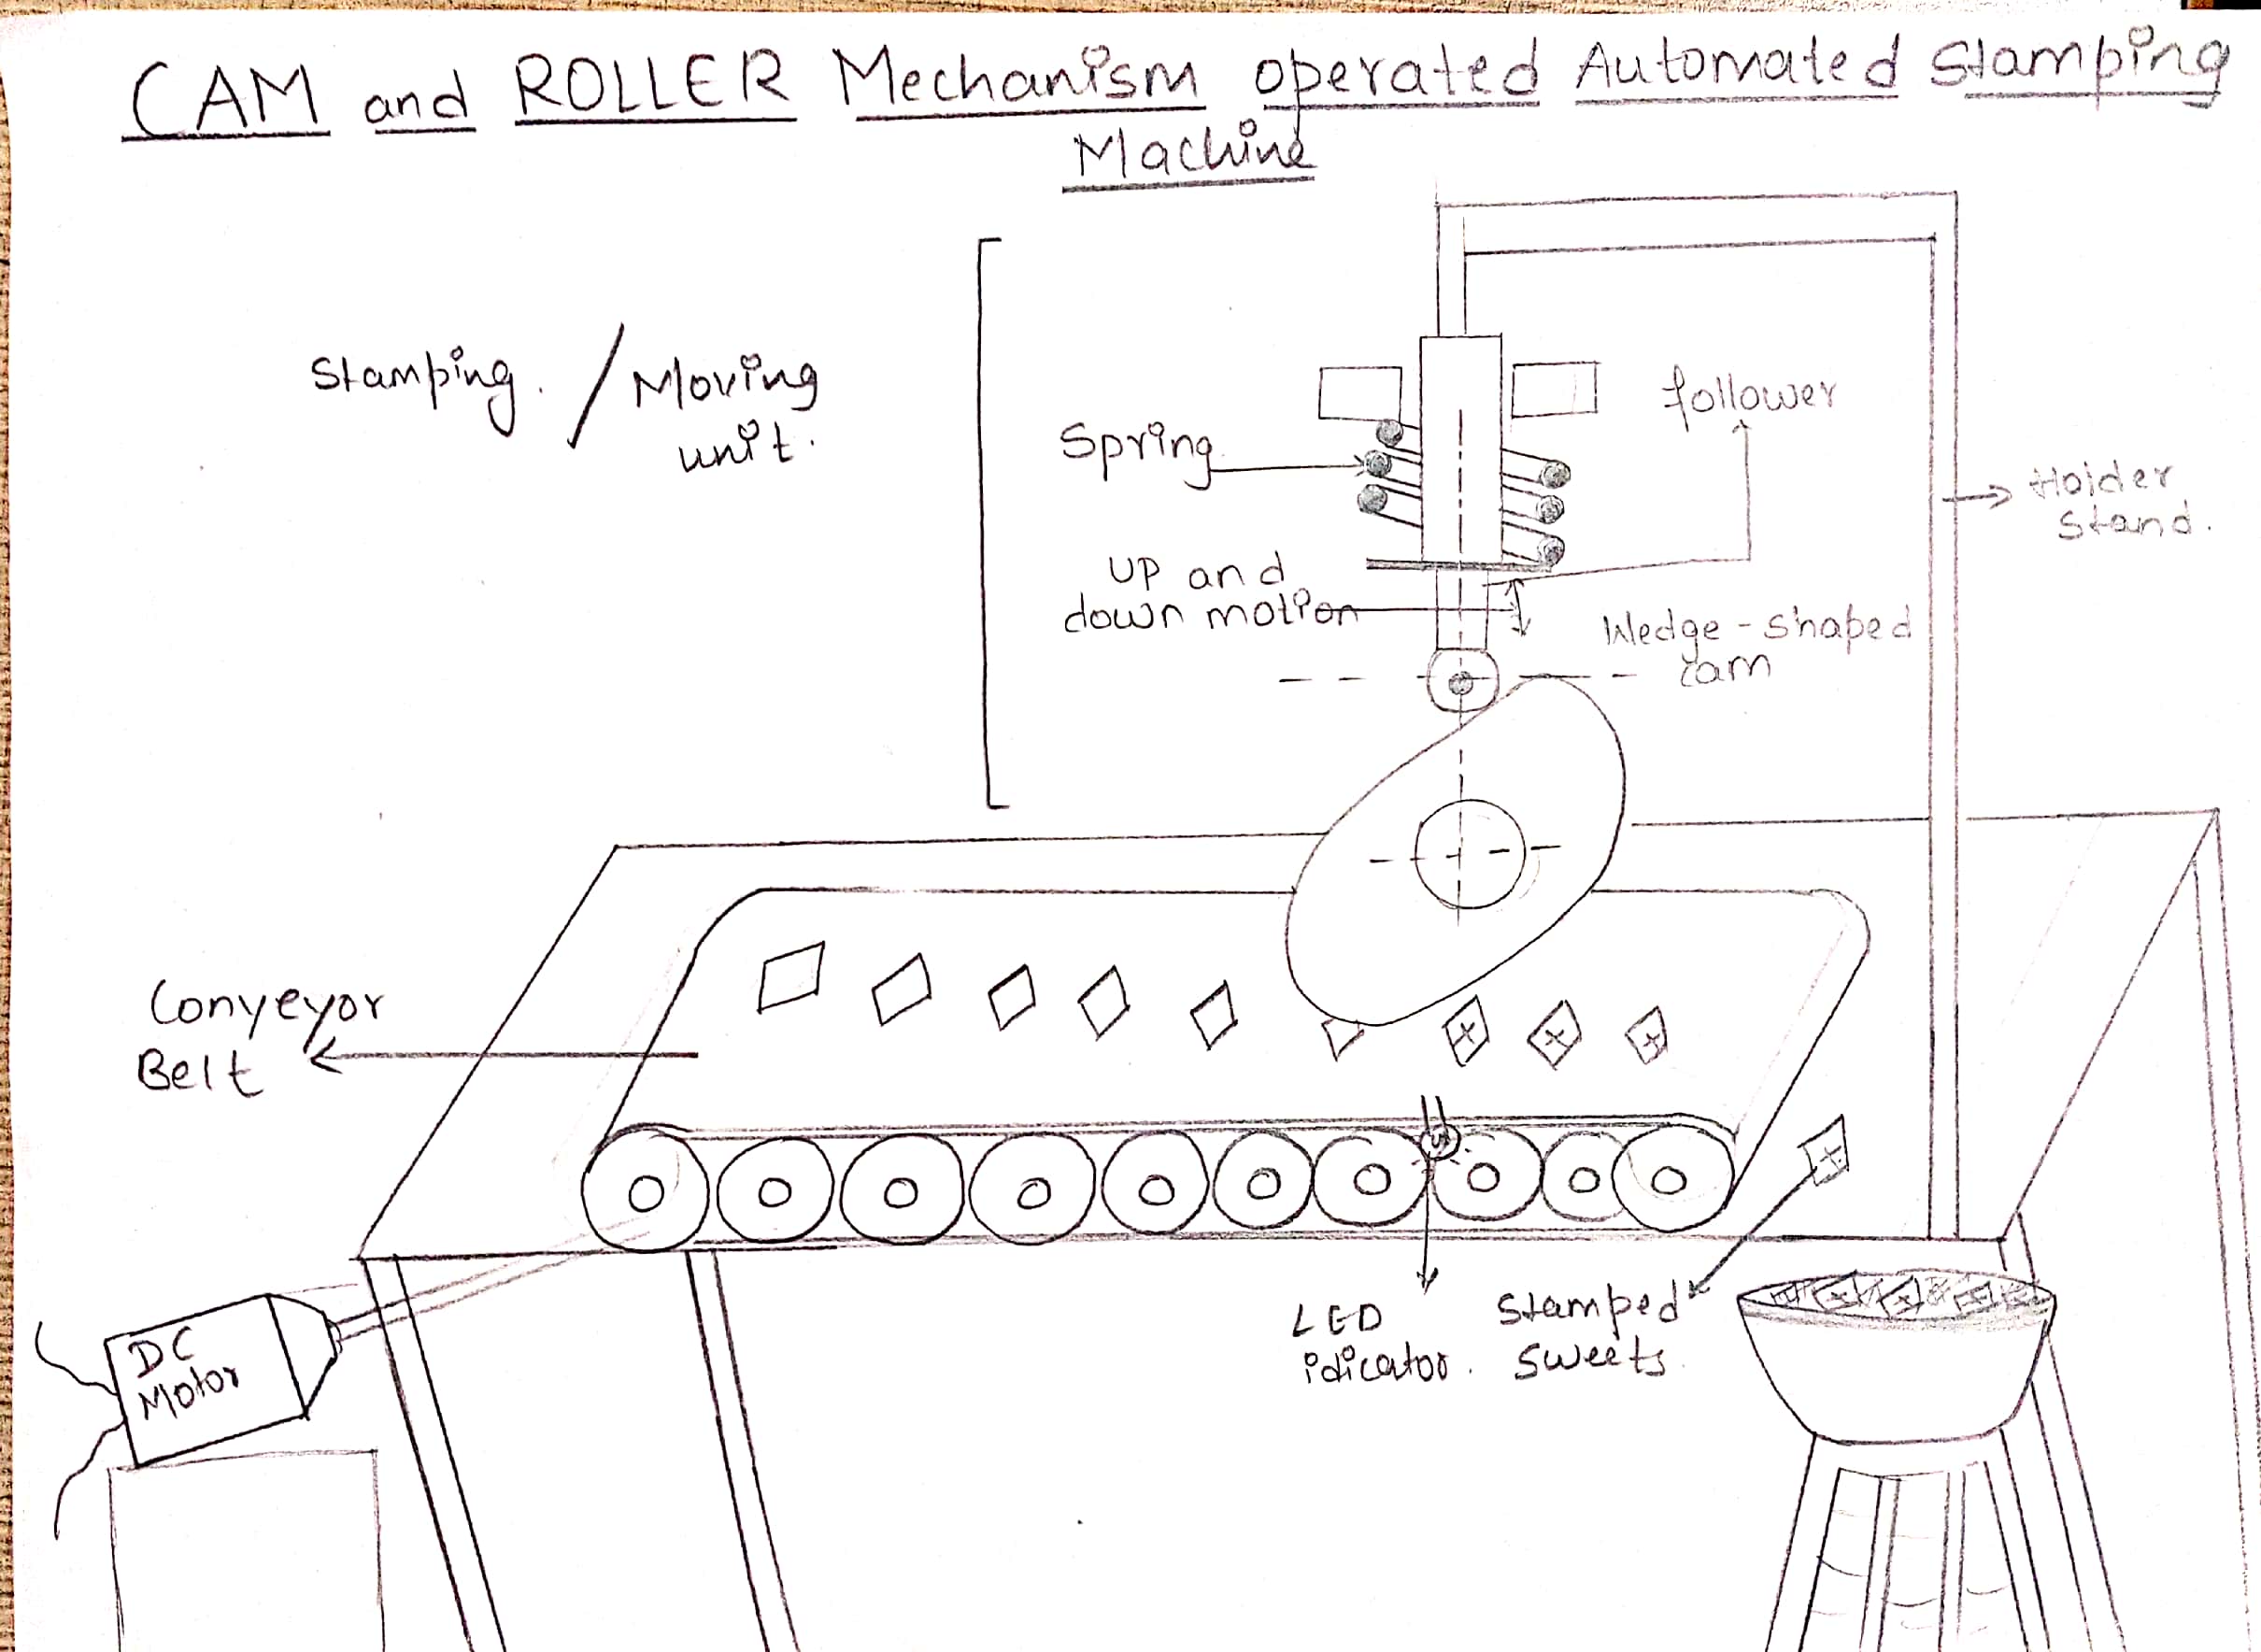 CAM and ROLLER Mechanism operated Automated Stamping
Machine
Stamping. / Moving
unit.
Spring
follower
Holder
stand.
UP and
down motion
Wedge-shaped
cam
Conyeyor
Belt
DC
Motor
LED
idicator.
Stamped
Sweets.